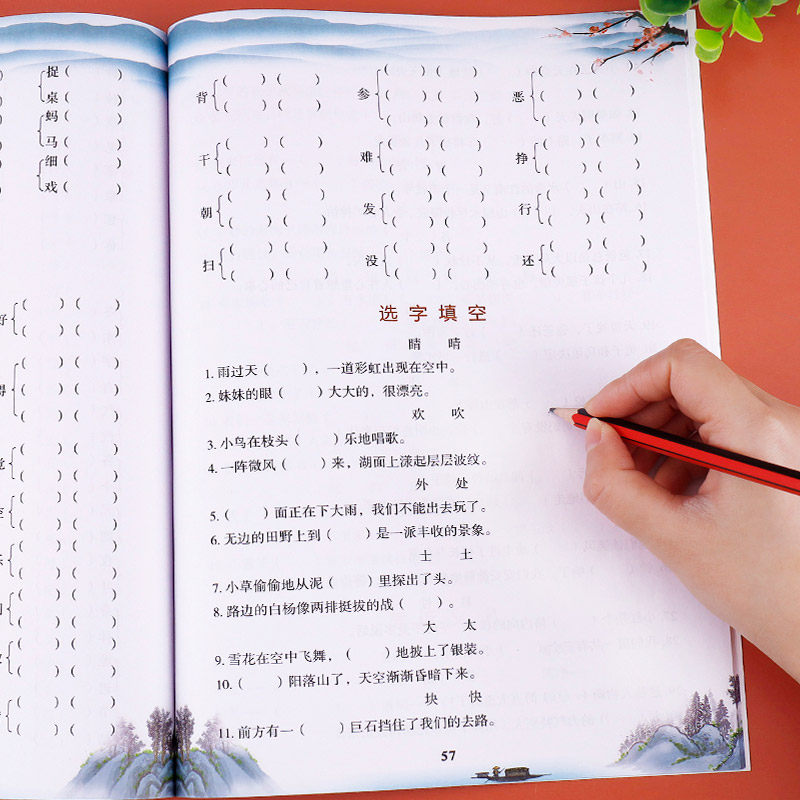 捉（ ）
桌（ ）
蚂（ ）
马（ ）
细（ ）
戏（ ）
好（ ）（ ）
（ ）（ ）
背（ ）（ ） 参（ ）（ ） 恶（ ）（ ）
（ ）（ ） （ ）（ ） （ ）（ ）
（ ）（ ） （ ）（ ）
干（ ）（ ） 难（ ）（ ） 挣（ ）（ ）
（ ）（ ） （ ）（ ） （ ）（ ）
朝（ ）（ ） 发（ ）（ ） 行（ ）（ ）
（ ）（ ） （ ）（ ） （ ）（ ）
扫（ ）（ ） 没（ ）（ ） 还（ ）（ ）
（ ）（ ） （ ）（ ） （ ）（ ）
选字填空
睛 晴
1. 雨过天（ ），一道彩虹出现在空中。
2. 妹妹的眼（ ）大大的，很漂亮。
欢 吹
3. 小鸟在枝头（ ）乐地唱歌。
4. 一阵微风（ ）来，湖面上漾起层层波纹。
外 处
5.（ ）面正在下大雨，我们不能出去玩了。
6. 无边的田野上到（ ）是一派丰收的景象。
士 土
7. 小草偷偷地从泥（ ）里探出了头。
8. 路边的白杨像两排挺拔的战（ ）。
大 太
9. 雪花在空中飞舞，（ ）地披上了银装。
10.（ ）阳落山了，天空渐渐昏暗下来。
块 快
11. 前方有一（ ）巨石挡住了我们的去路。
57